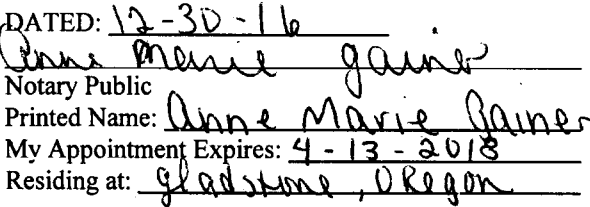 DATED: 12-30-16
Anne Marie Gainer
Notary Public
Printed Name: Anne Marie Gainer
My Appointment Expires: 4-13-2018
Residing at: Gladstone, Oregon